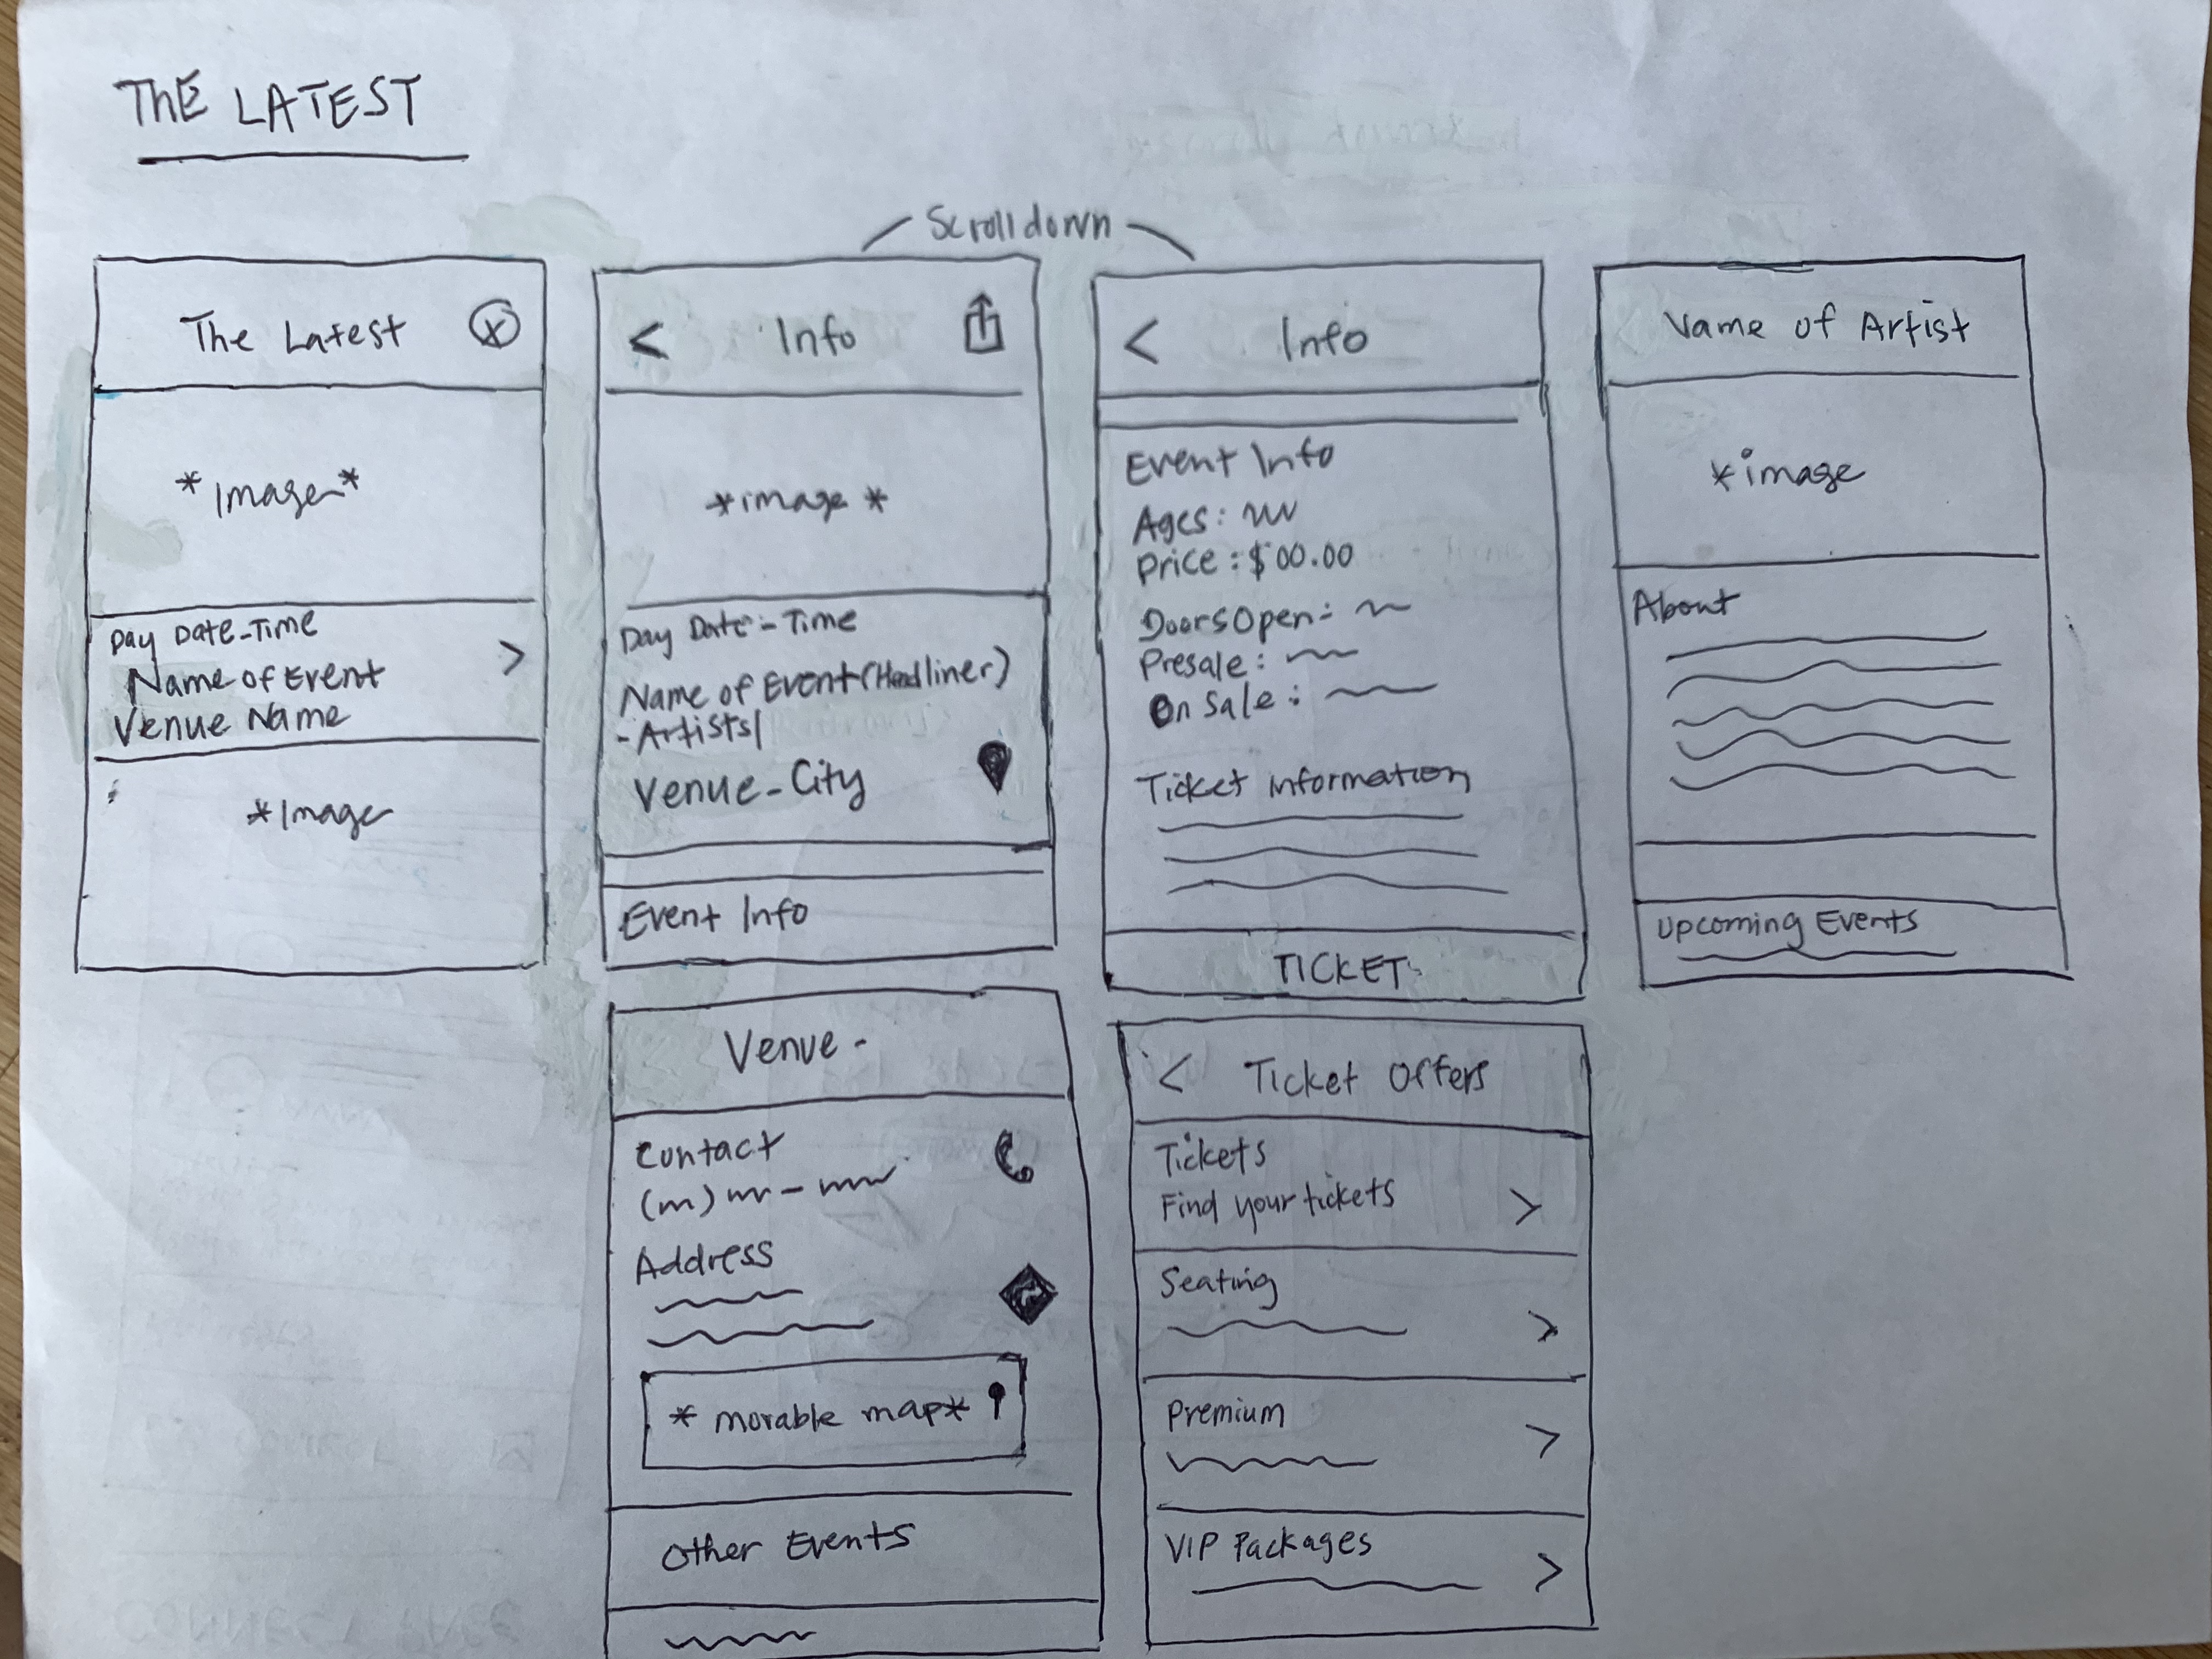 THE LATEST
Scrolldown
The Latest
*Image*
Day Date-Time
Name of Event
Venue Name
*Image
Info
*image*
Day Date - Time
Name of Event (Headliner)
- Artists/
Venue - City
Event Info
Info
Event Info
Ages:
Price: $00.00
Doors Open:
Presale:
On Sale:
Ticket information
TICKET
Name of Artist
*image
About
Upcoming Events
Venue -
Contact
Address
* movable map*
Other Events
Ticket Offers
Tickets
Find your tickets
Seating
Premium
VIP Packages